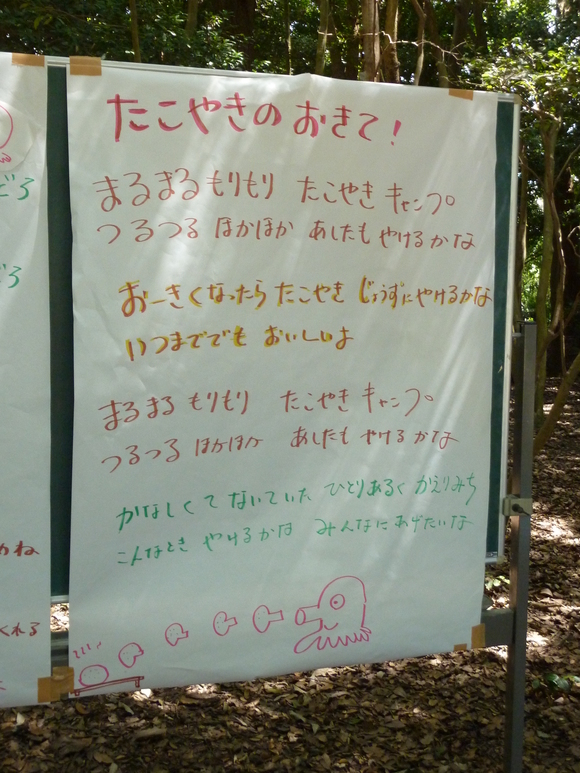 たこやきのおきて!
まるまるもりもり たこやき キャンプ。
つるつる ほかほか あしたも やけるかな
おーきくなったら たこやき じょうずにやけるかな
いつまででも おいしいよ
まるまる もりもり たこやき キャンプ。
つるつる ほかほか あしたも やけるかな
かなしくて ないていた ひとりあるく かえりみち
こんなとき やけるかな みんなにあげたいな
どろ
ぞろ
かね
くれる